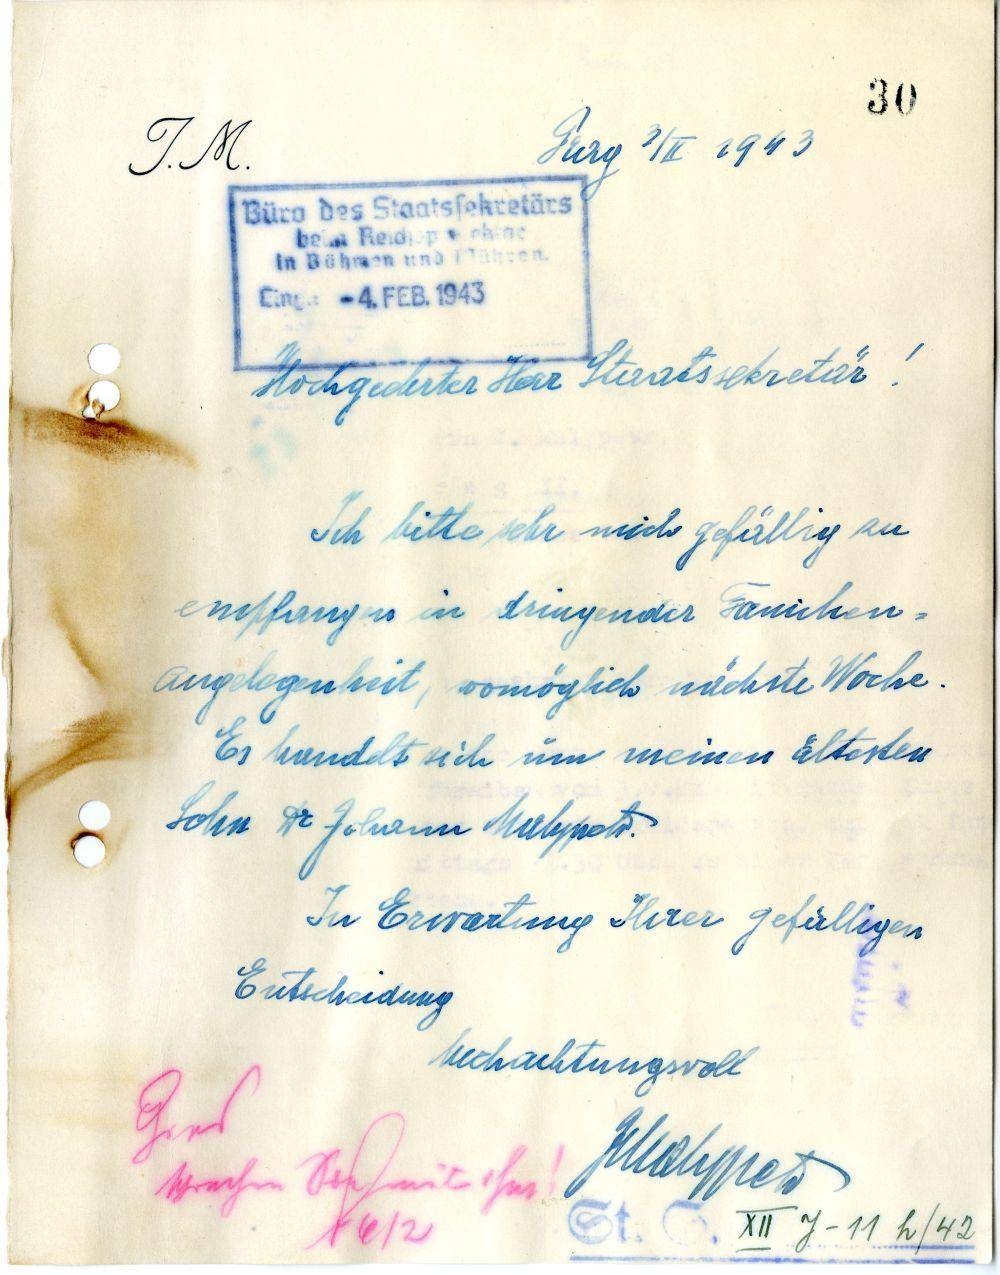 30
J. M.
Prag 3/II 1943
Büro des Staatssekretärs
beim Reichsprotektor
in Böhmen und Mähren.
Eing. -4. FEB. 1943
Hochgeehrter Herr Staatssekretär!
Ich bitte sehr mich gefällig zu
empfangen in dringender Familien=
angelegenheit, womöglich nächste Woche.
Es handelt sich um meinen ältesten
Sohn Dr Johann Malypetr.
In Erwartung Ihrer gefälligen
Entscheidung
hochachtungsvoll
JMalypetr
6/2
St. S. XII J-11 h/42